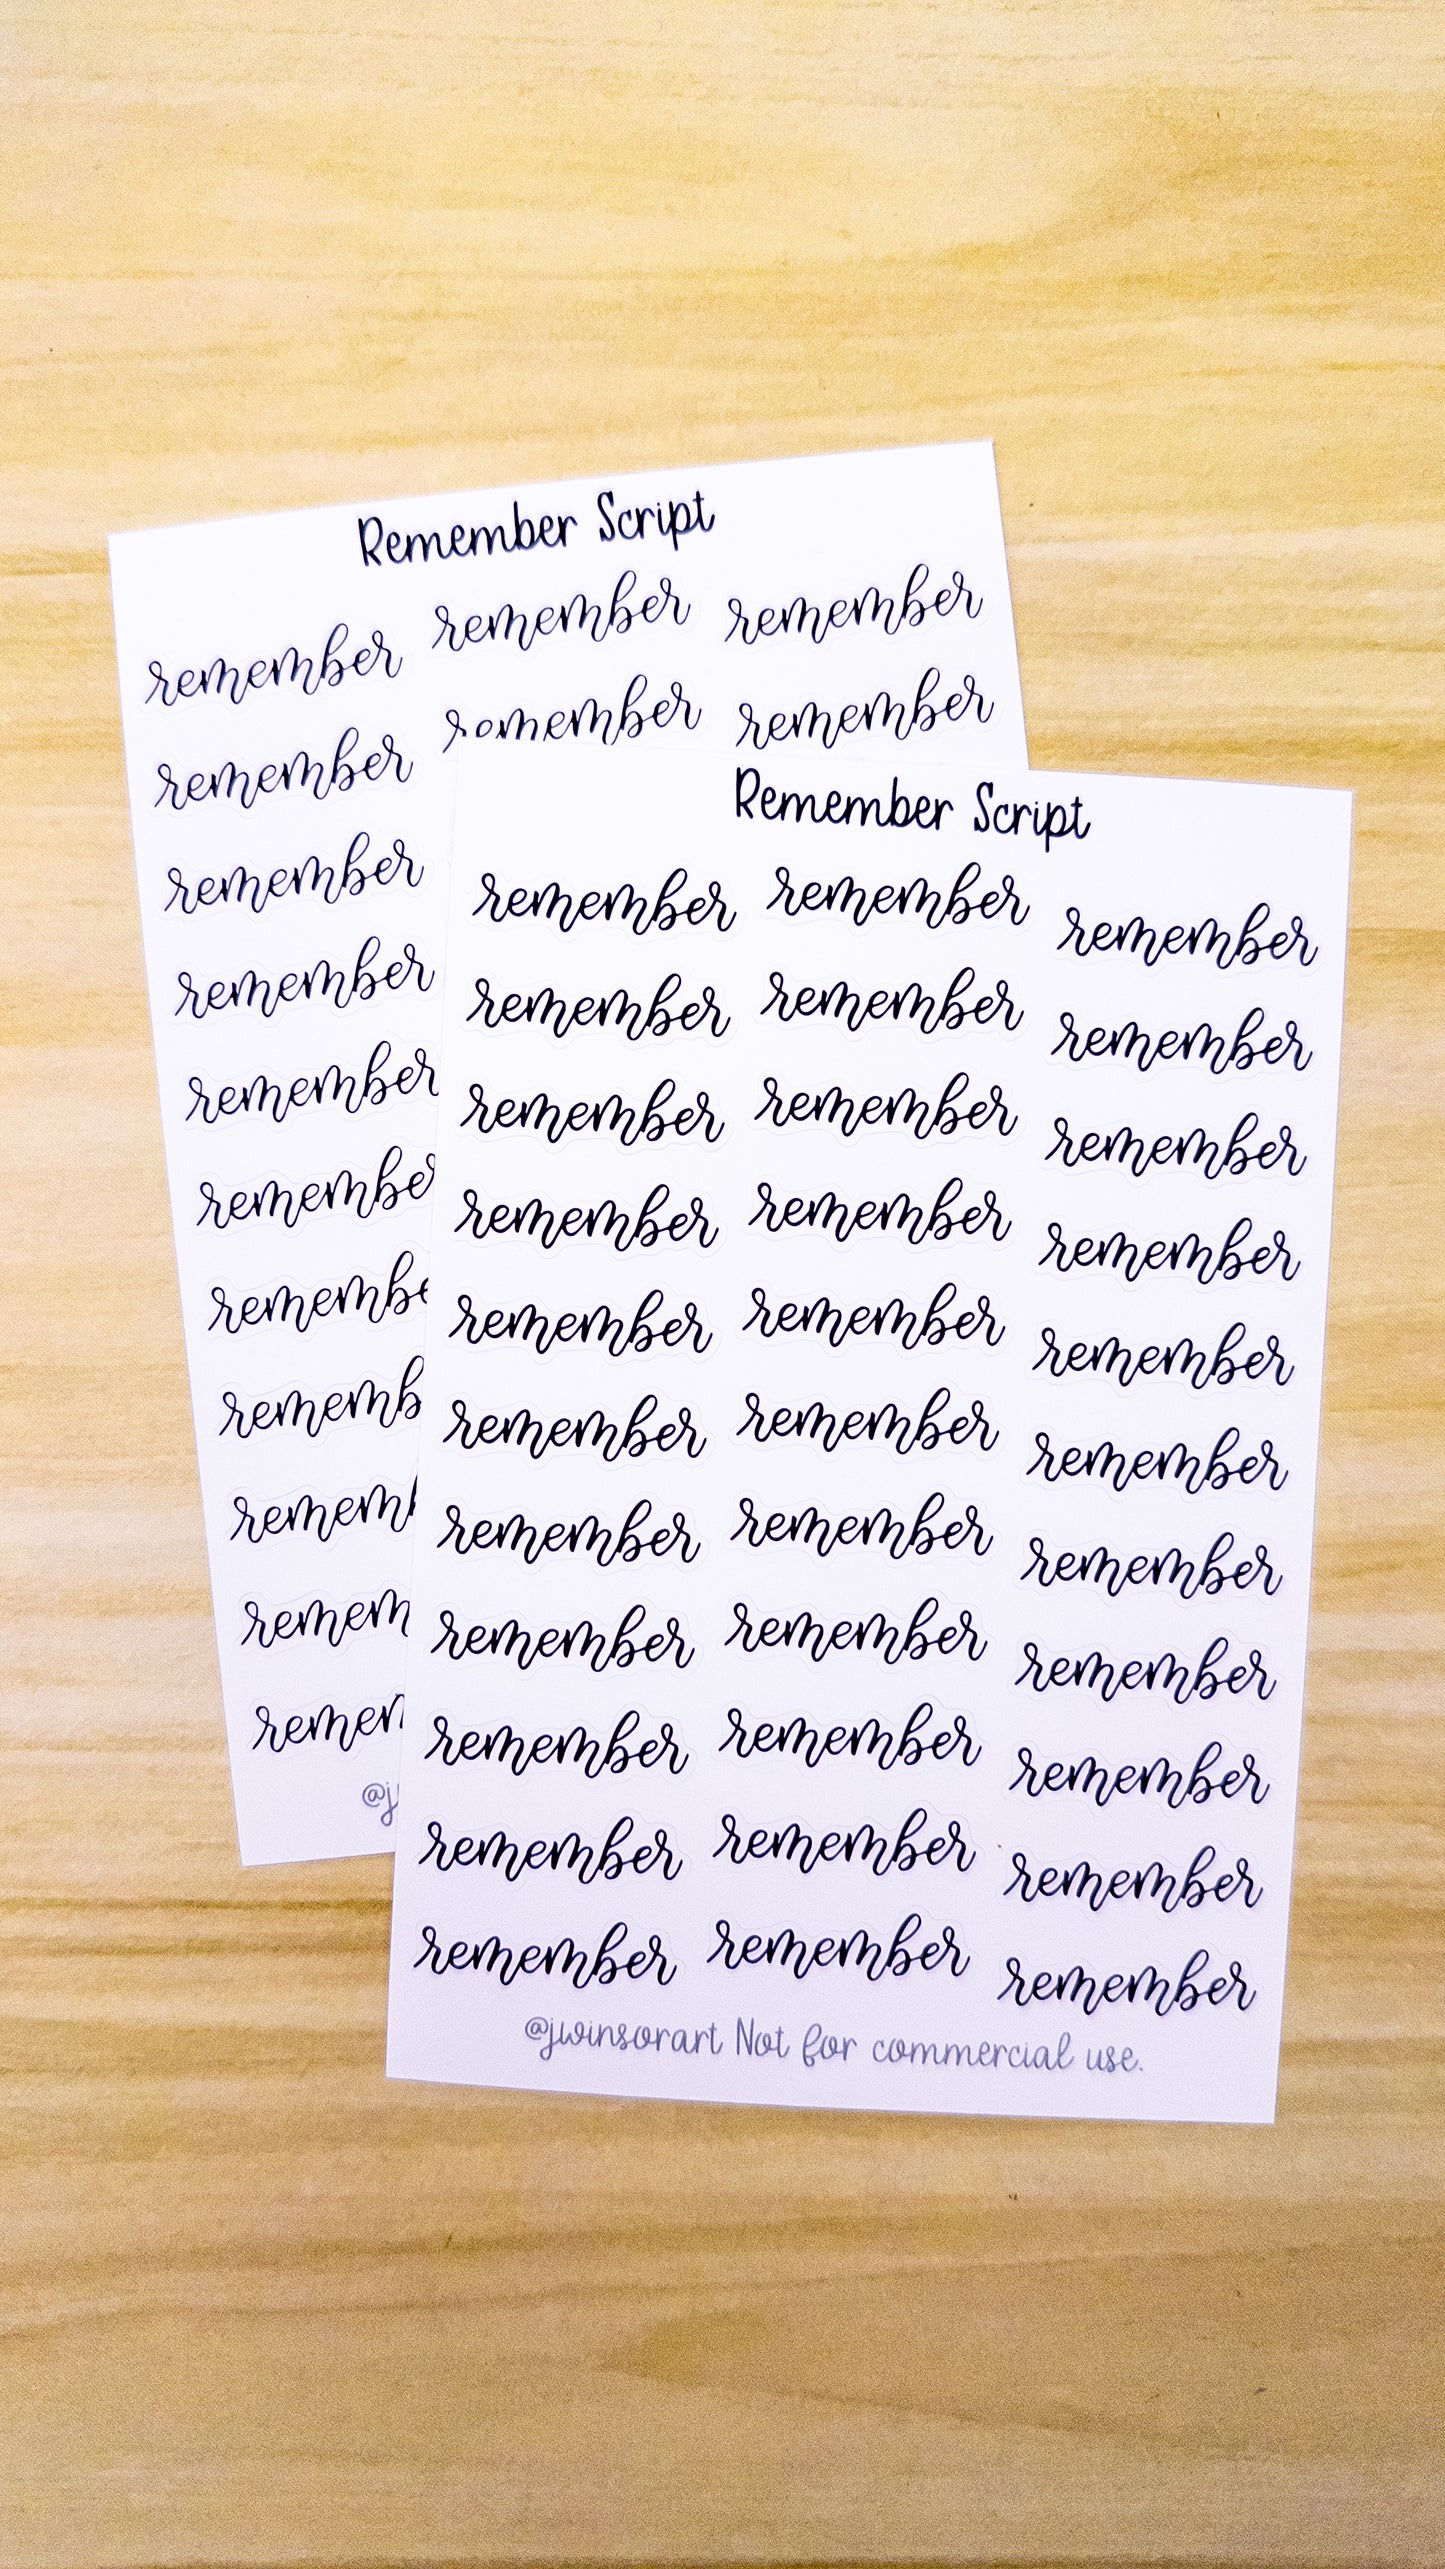 Remember Script
remember remember remember
remember remember remember
remember
remember
remember
remembe
remembe
rememb
rememb
remem
remem
@j
Remember Script
remember remember remember
remember remember remember
remember remember remember
remember remember remember
remember remember remember
remember remember remember
remember remember remember
remember remember remember
remember remember remember
remember remember remember
remember remember remember
@jwinsorart Not for commercial use.